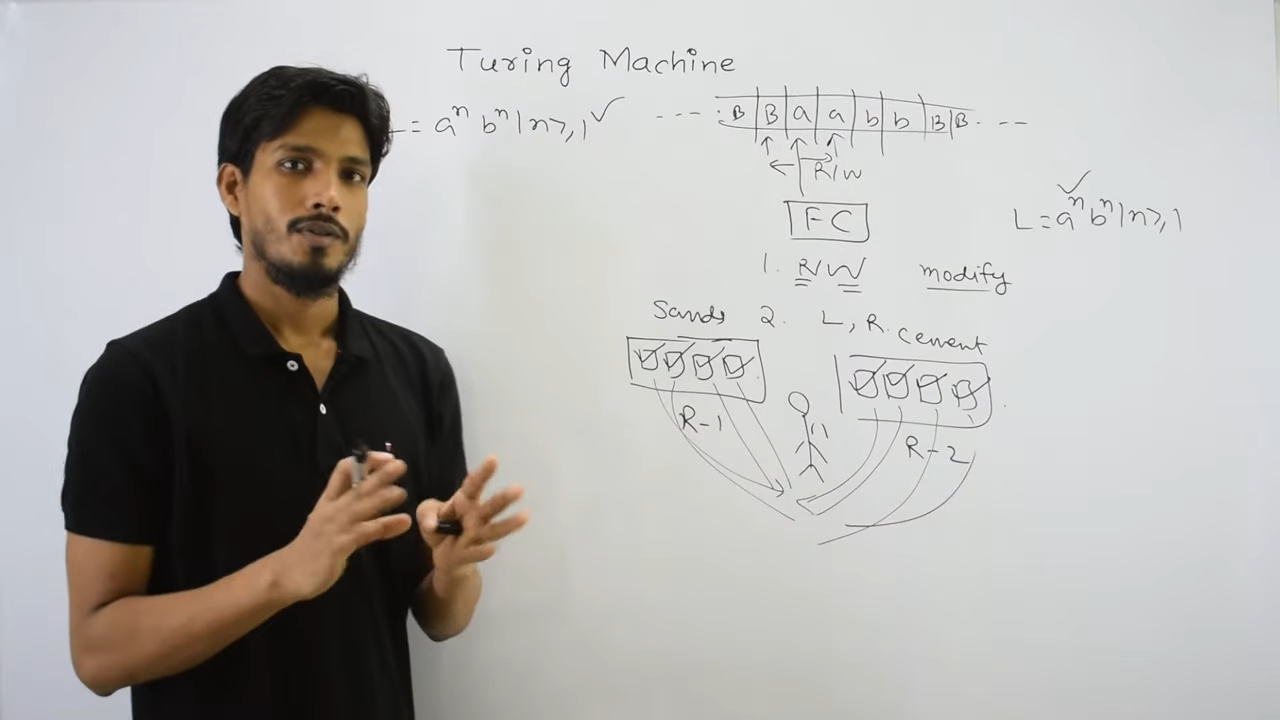 Turing Machine
L = aⁿ bⁿ | n ≥, 1 ✓
--- B B a a b b B B . --
R/W
✓
L = aⁿ bⁿ | n ≥, 1
FC
1. R/W modify
Sands 2. L, R. cement
B B B B
B B B B
R-1
R-2